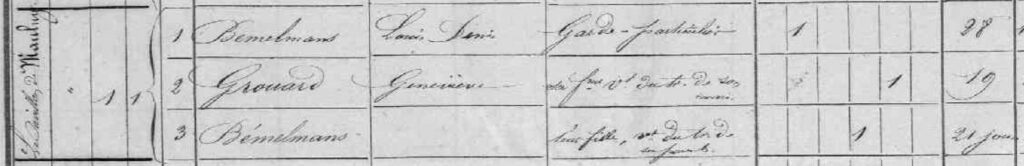 1 Bemelmans Louis Denis Garde-particulier 1 28
" 1 1 2 Grouard Geneviève sa fme vt du tr. de son 1 19
mari.
3 Bémelmans leur fille, vt du tr. de 1 21 jours
ses parents.